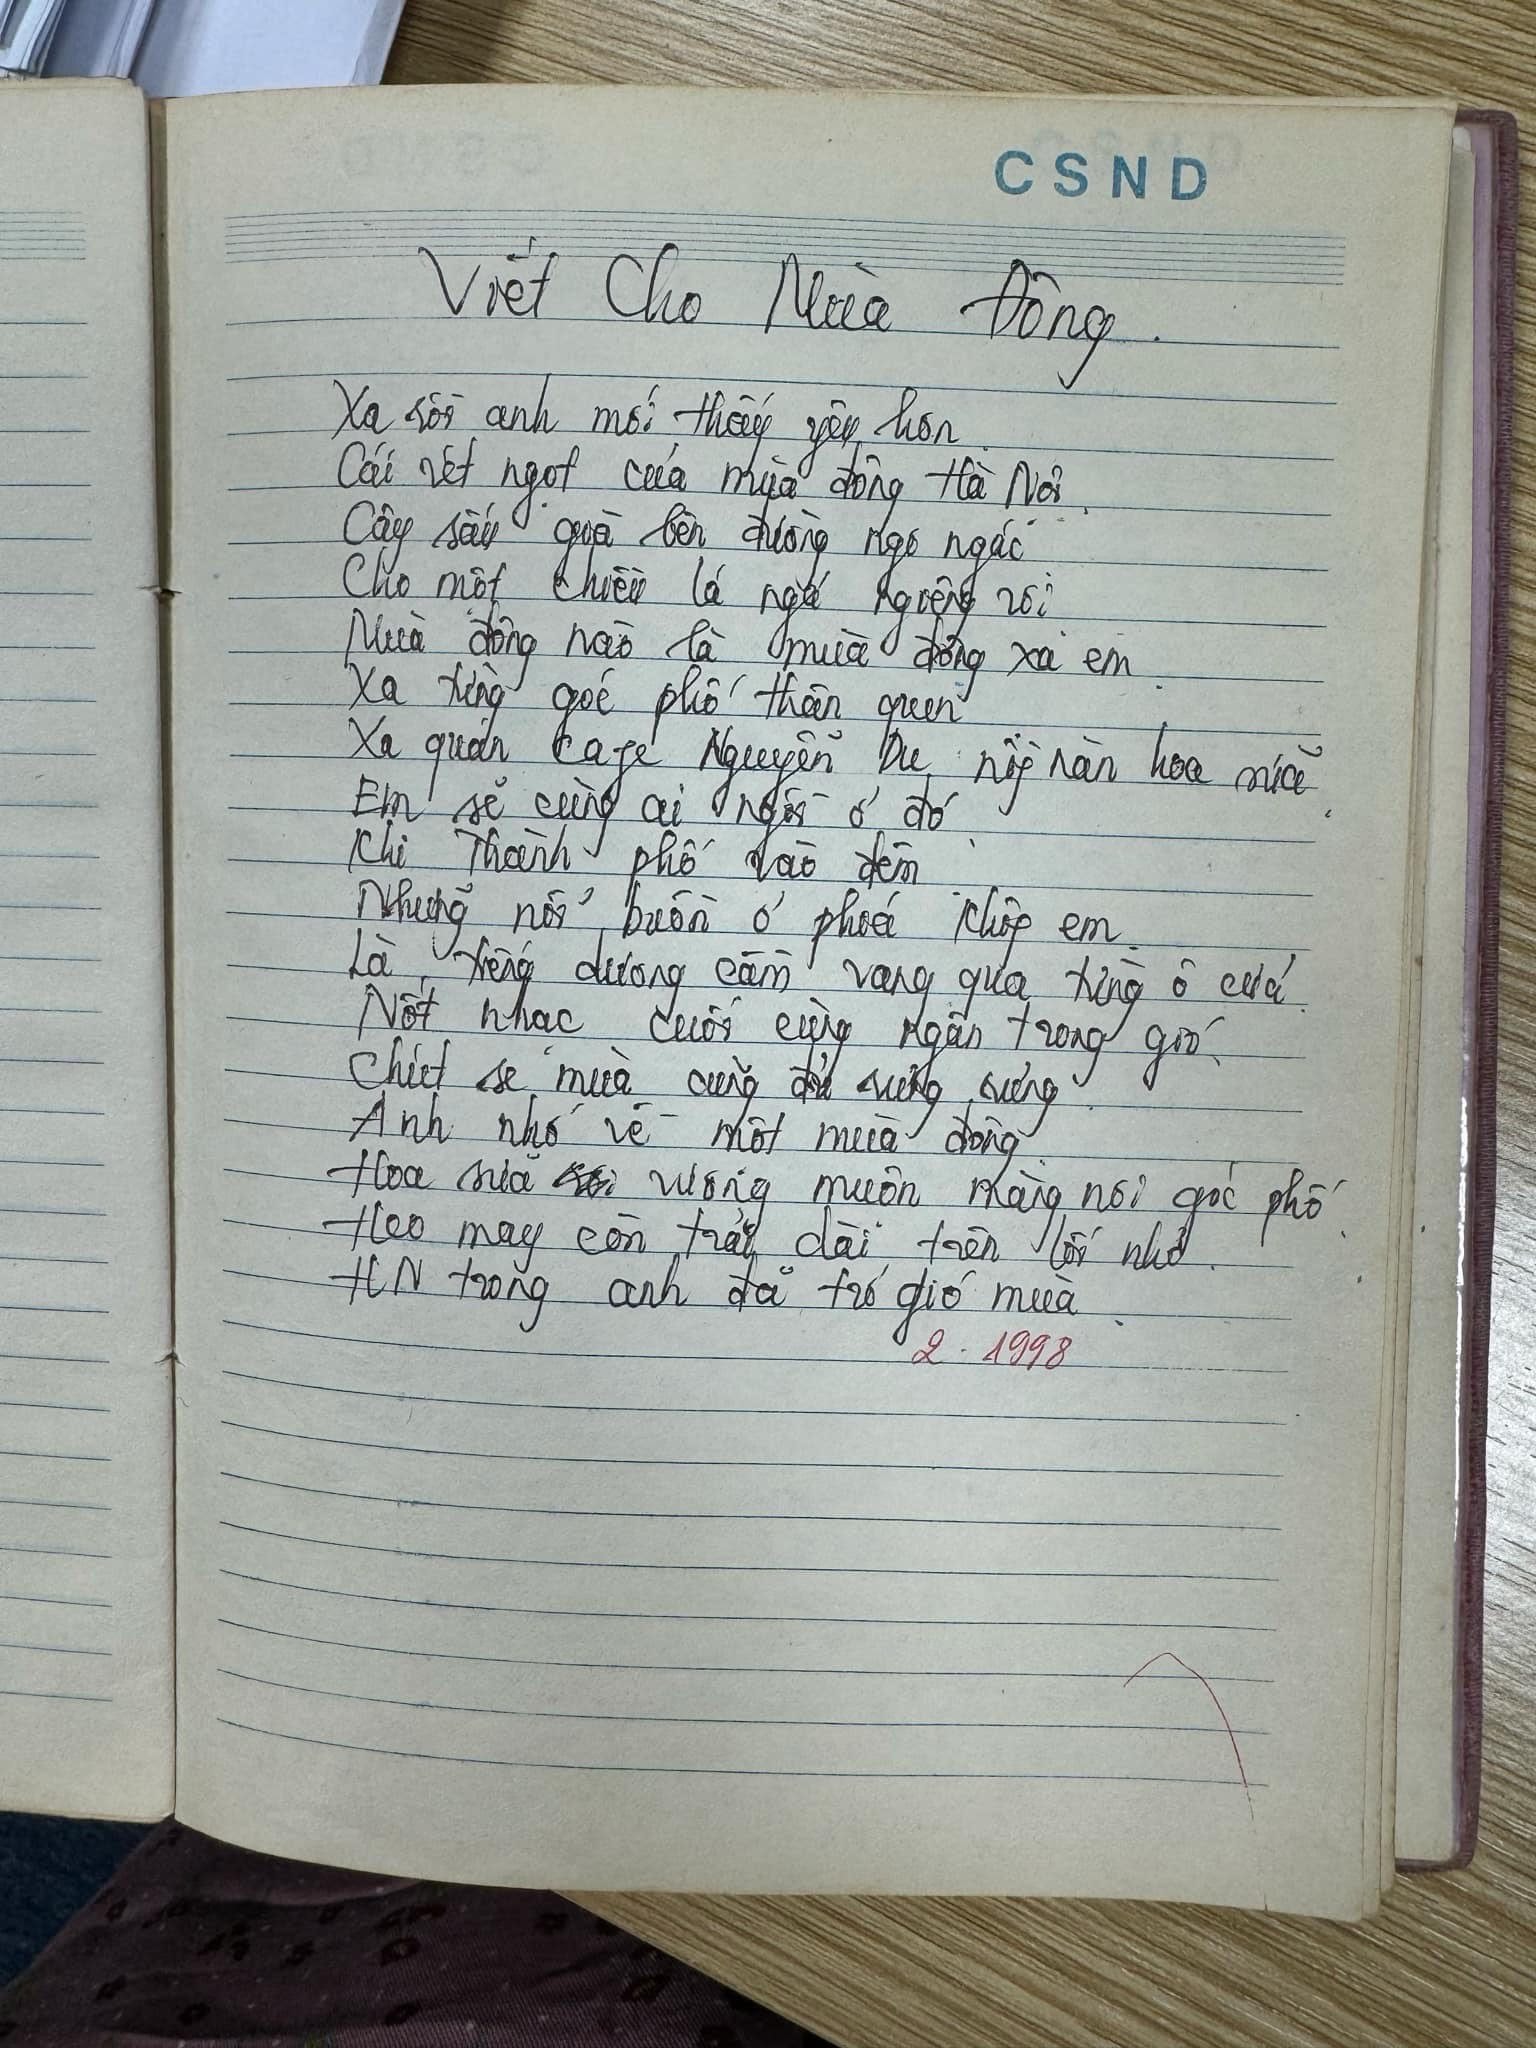 CSND
Viết Cho Mùa Đông.
Xa rồi anh mới thấy yêu hơn
Cái rét ngọt của mùa đông Hà Nội.
Cây sấu già bên đường ngơ ngác
Cho một chiều lá ngả nghiêng rơi
Mùa đông nào là mùa đông xa em.
Xa từng góc phố thân quen
Xa quán cafe Nguyễn Du nồng nàn hoa sữa.
Em sẽ cùng ai ngồi ở đó
Khi Thành phố vào đêm
Nhưng nỗi buồn ở phía không em.
Là tiếng dương cầm vang qua từng ô cửa
Nốt nhạc cuối cùng ngân trong gió.
Chút se mùa cũng đủ rưng rưng.
Anh nhớ về một mùa đông.
Hoa sữa vương muộn màng nơi góc phố.
Heo may còn trải dài trên lối nhỏ.
HN trong anh đã trở gió mùa.
2.1998